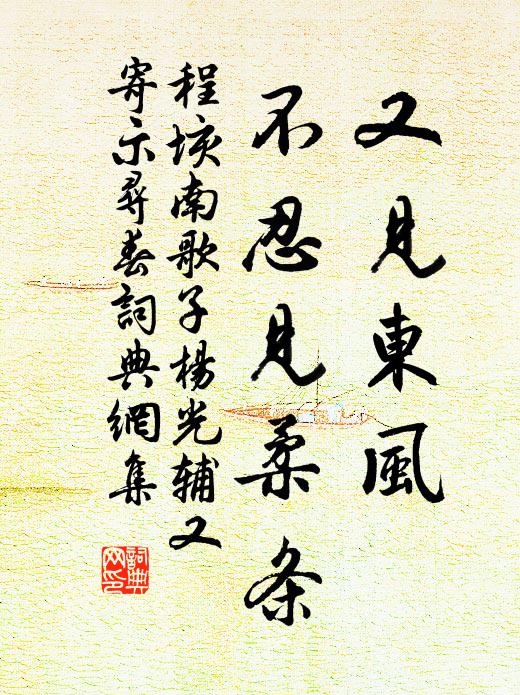 又見東風
不忍見柔条
程垓南歌子楊光輔又
寄示尋春詞典網集
詞典网印